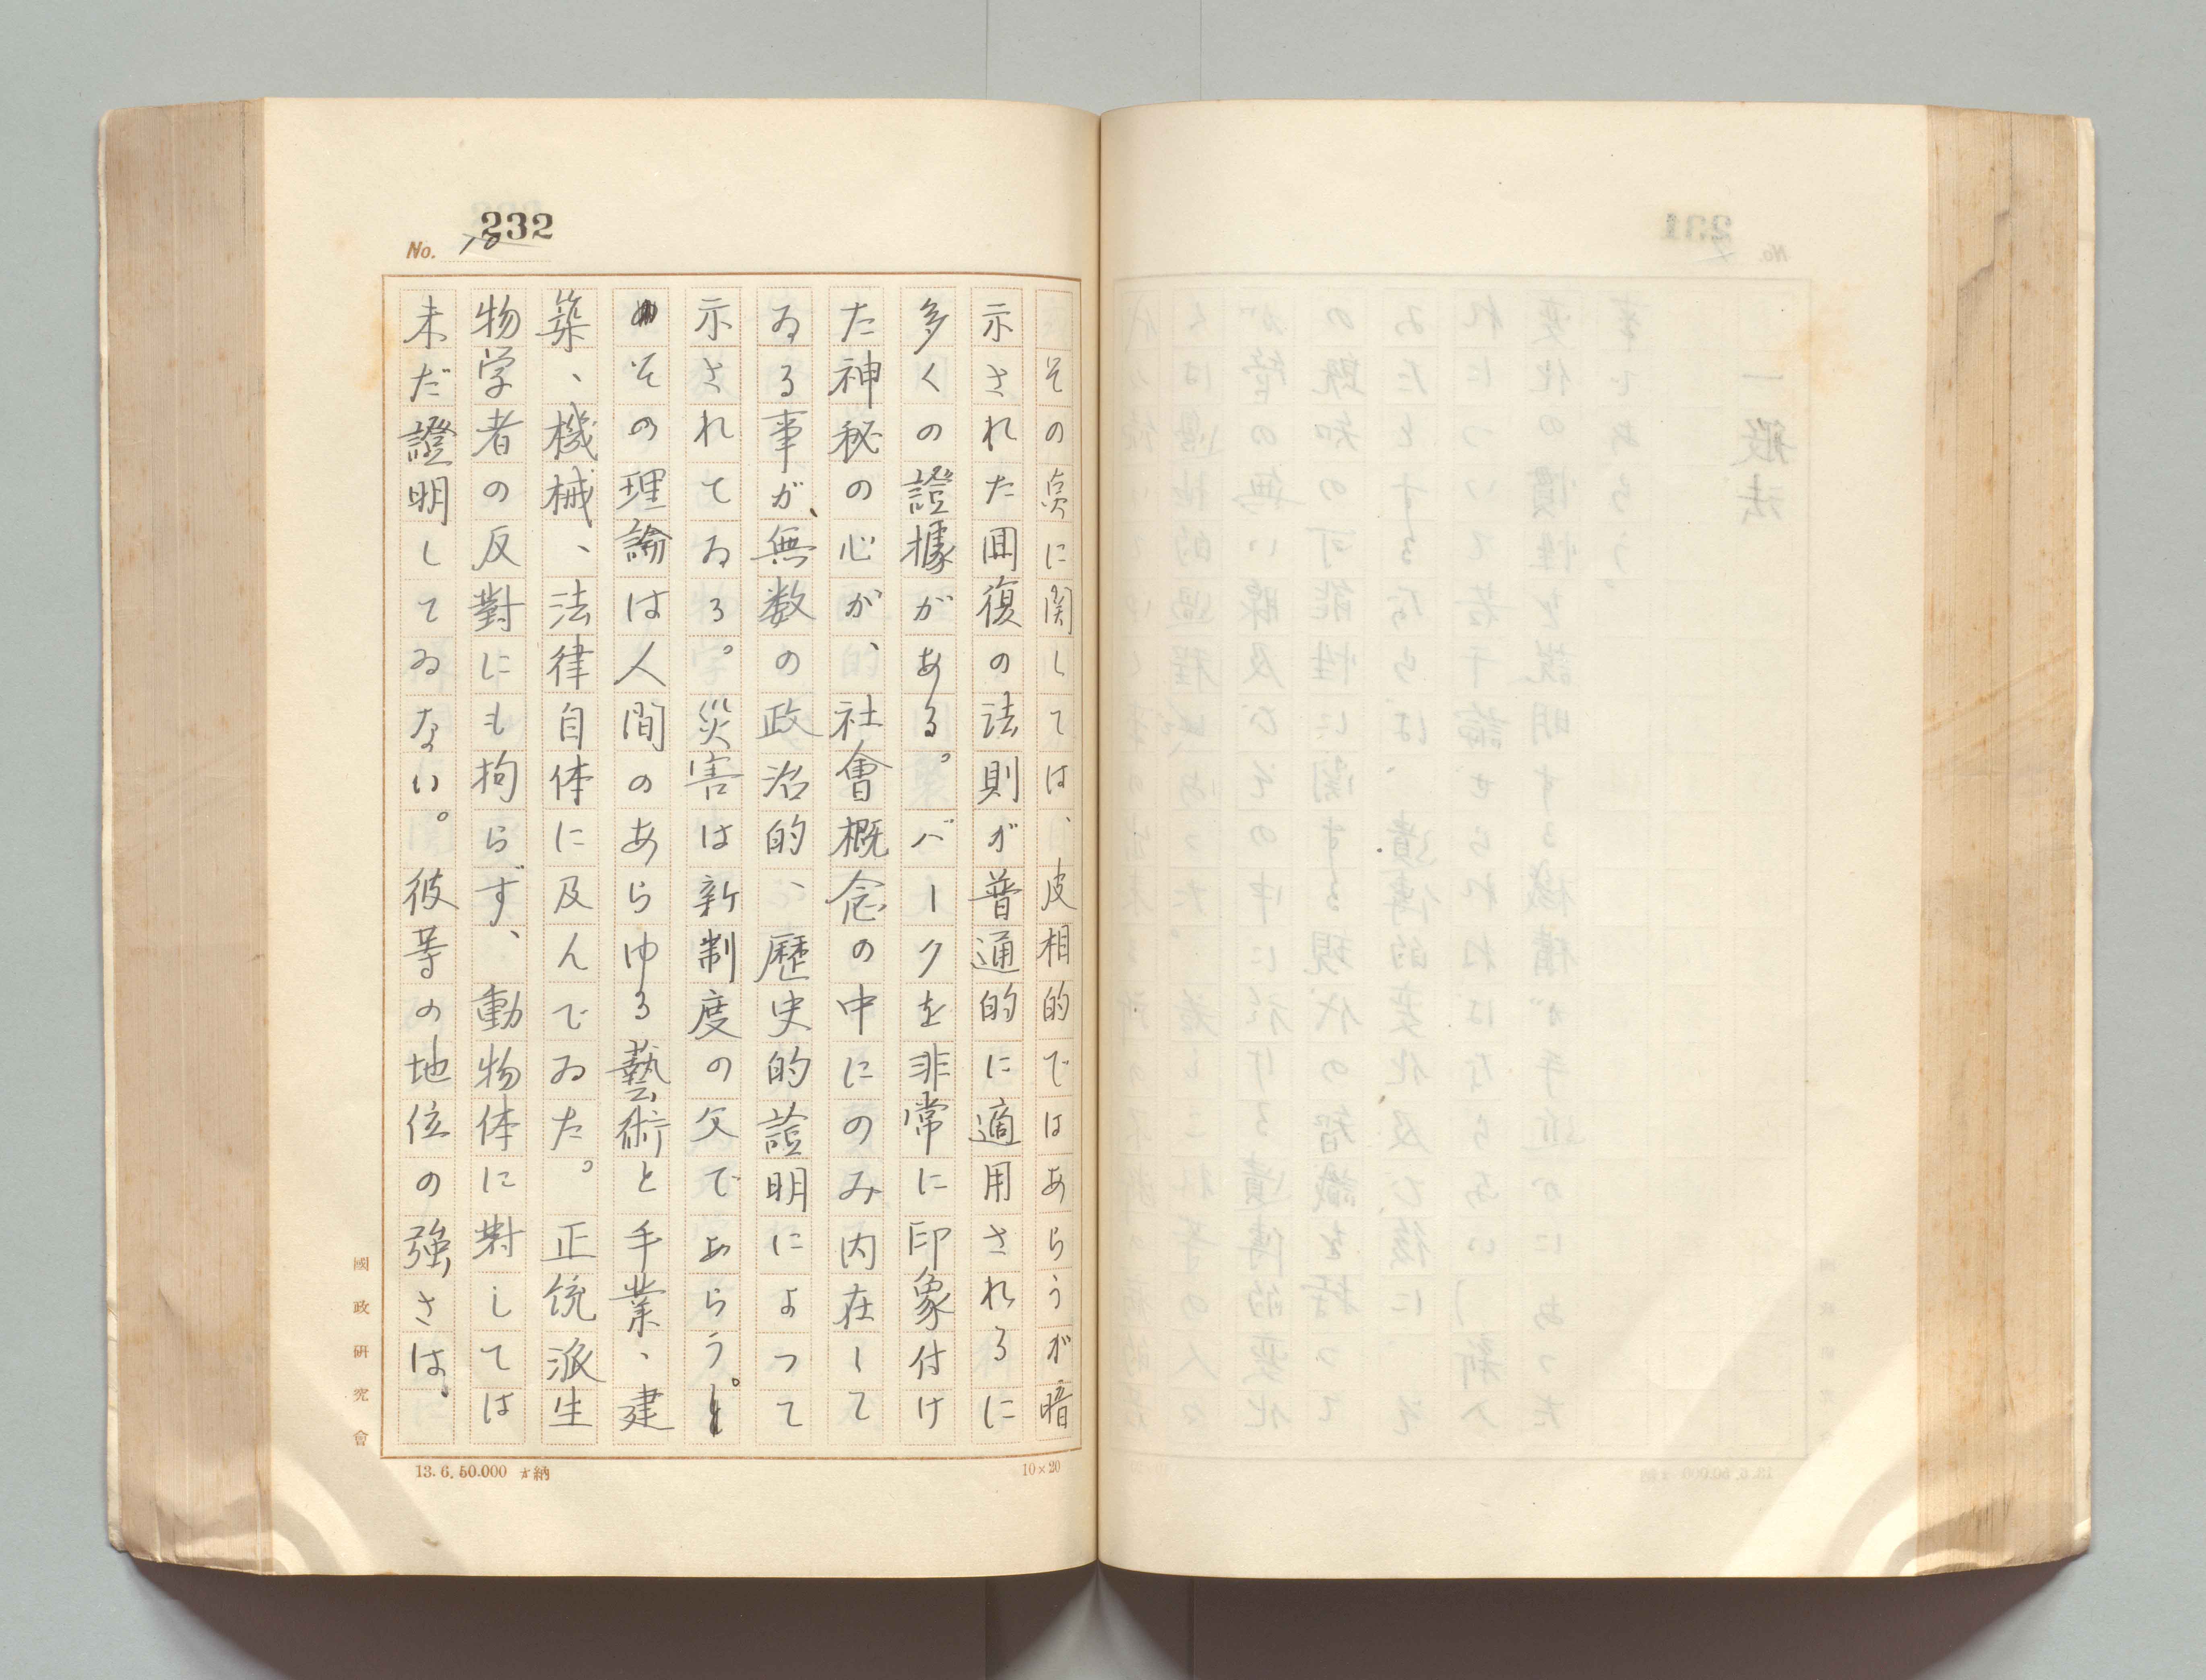 232
No. 18
その点に関しては、皮相的ではあらうが暗
示された囘復の法則が普通的に適用されるに
多くの證據がある。バークを非常に印象付け
た神秘の心が、社會概念の中にのみ内在して
ゐる事が、無数の政治的、歴史的證明によつて
示されてゐる。災害は新制度の父であらう。
その理論は人間のあらゆる藝術と手業、建
築、機械、法律自体に及んでゐた。正統派生
物学者の反對にも拘らず、動物体に對しては
未だ證明してゐない。彼等の地位の強さは。
國政研究會
13.6.50.000 納
10×20